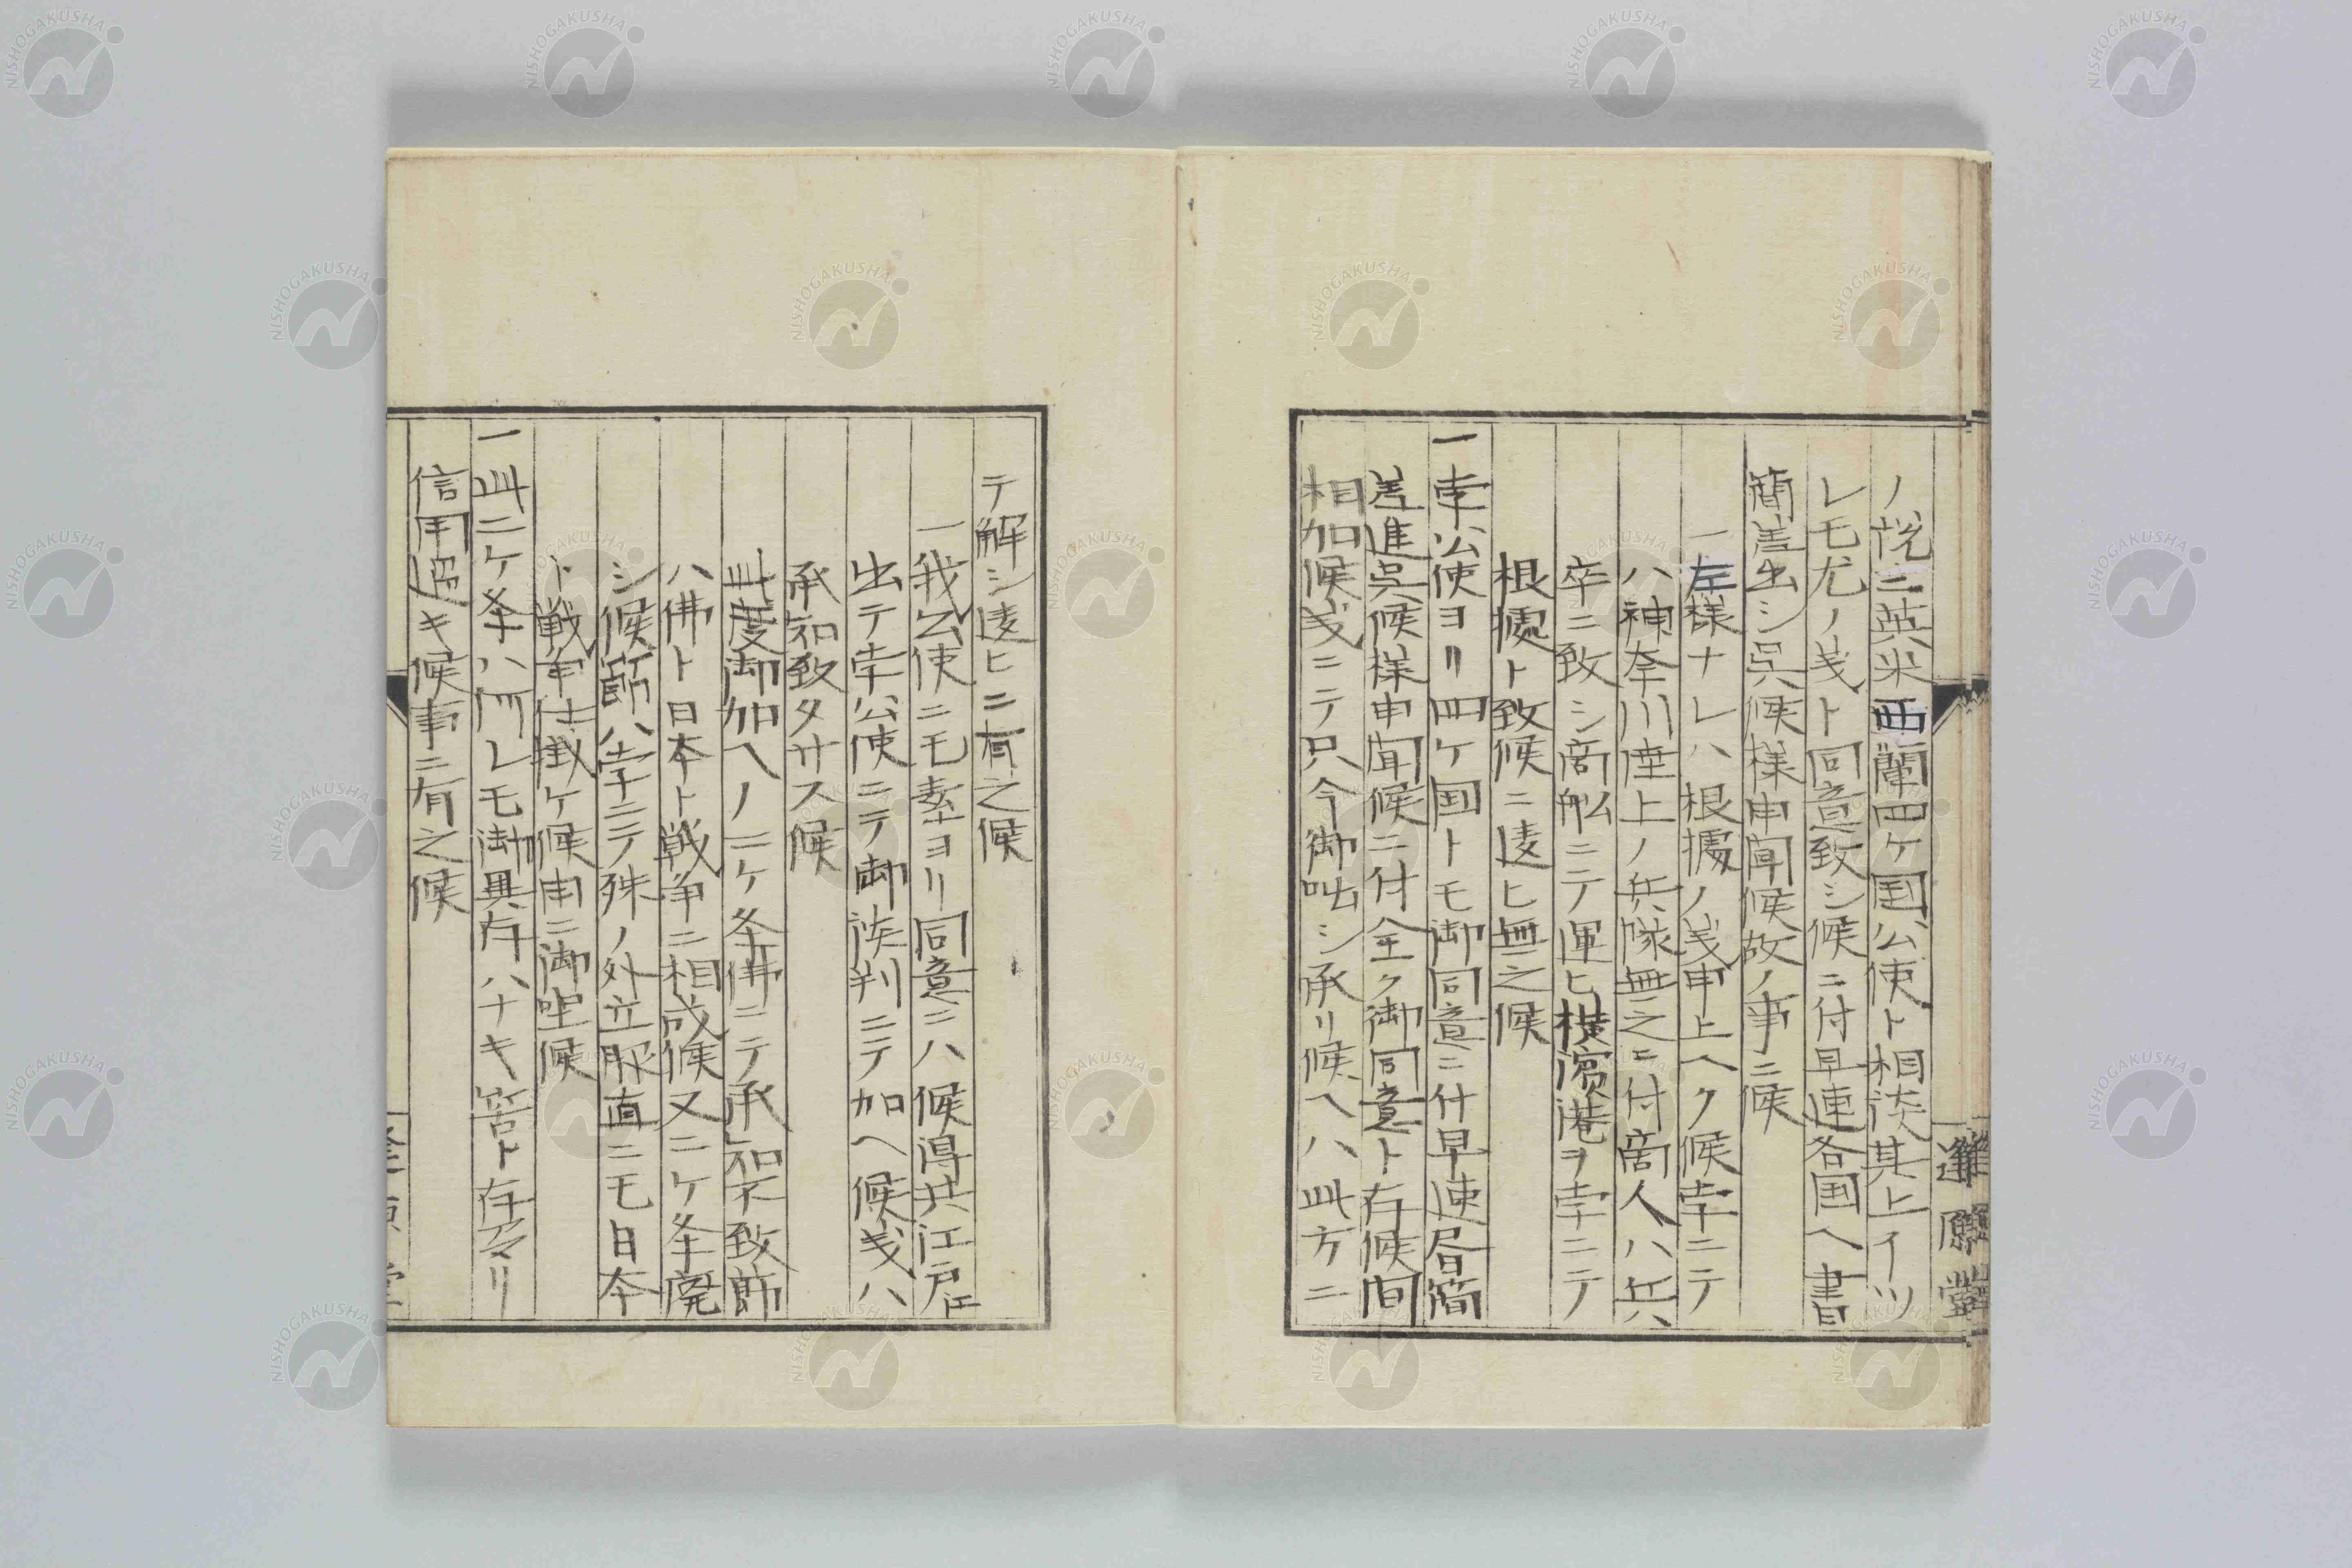 ノ説ニ英米西蘭四ケ国公使ト相談其上イツ
レモ尤ノ義ト同意致シ候ニ付早速各国ヘ書
簡差出シ呉候様申聞候故ノ事ニ候
一左様ナレハ根據ノ義申上ヘク候孛ニテ
ハ神奈川陸上ノ兵隊無之ニ付商人ハ兵
卒ニ致シ商船ニテ運ヒ横濱港ヲ孛ニテ
根據ト致候ニ違ヒ無之候
一孛公使ヨリ四ケ国トモ御同意ニ付早速書簡
差進呉候様申聞候ニ付全ク御同意ト存候間
相加候義ニテ只今御咄シ承リ候ヘハ此方ニ
進原堂
テ解シ違ヒニ有之候
一我公使ニモ素ヨリ同意ニハ候得共江戸江
出テ孛公使ニテ御談判ニテ加ヘ候義ハ
承知致タサス候
此度御加ヘノ二ケ条佛ニテ承知不致節
ハ佛ト日本ト戦争ニ相成候又二ケ条廃
シ候節ハ孛ニテ殊ノ外立腹直ニモ日本
ト戦争仕掛ケ候由ニ御座候
一此二ケ条ハ何レモ御異存ハナキ筈ト存アマリ
信用過キ候事ニ有之候
NISHOGAKUSHA